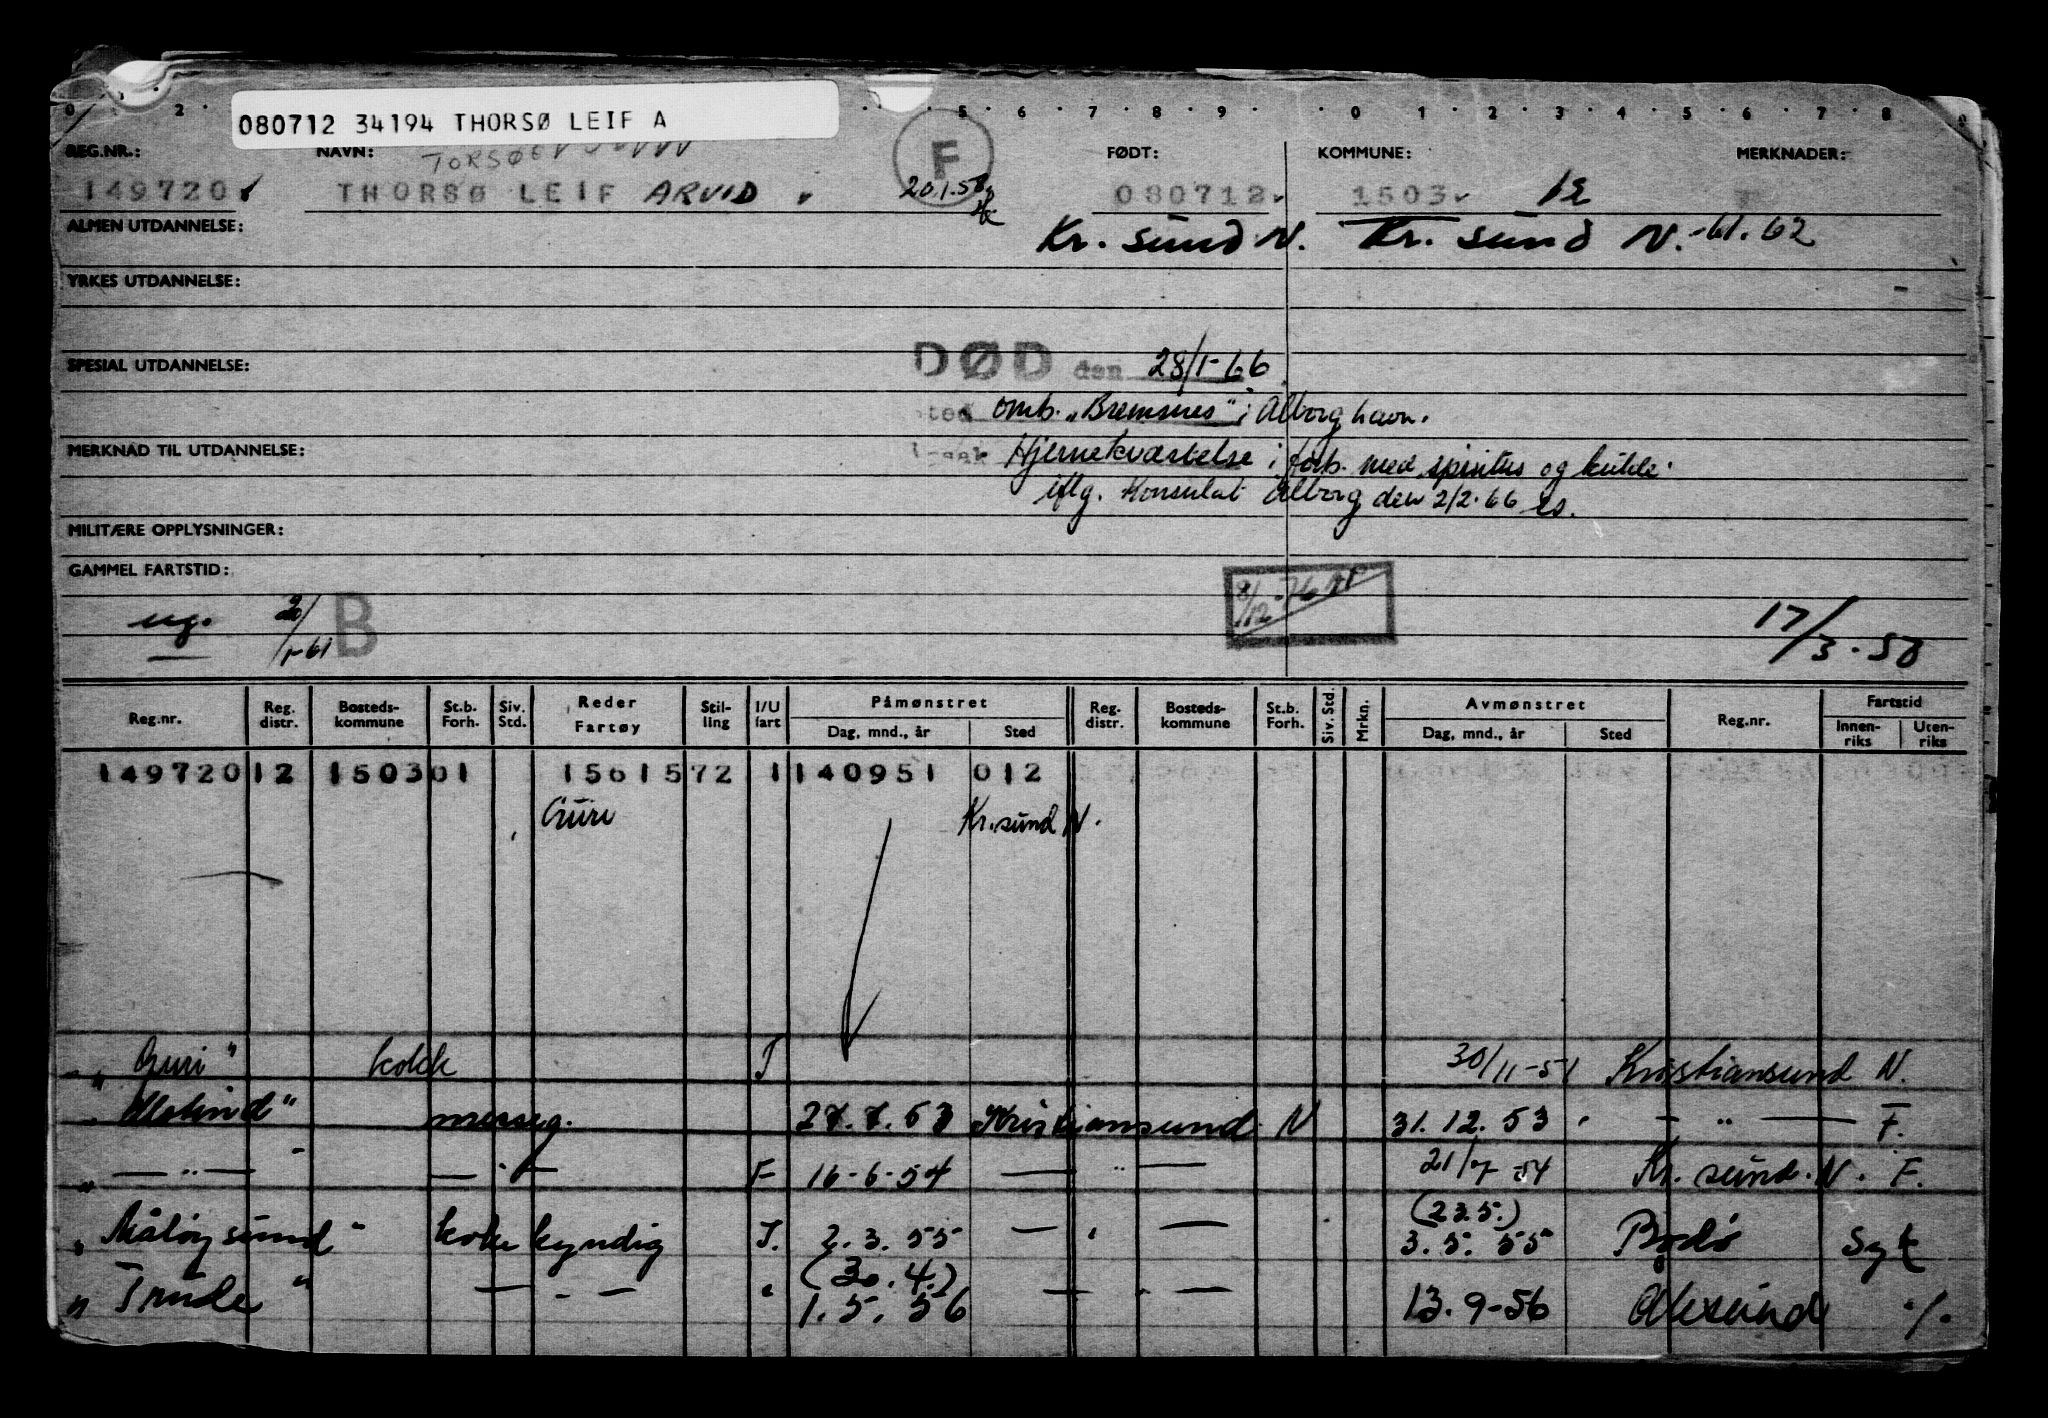 0 2 . . 5 . 6 . 7 . 8 . 9 . . 0 . 1 . 2 . 3 . 4 . 5 . 6 . 7 . 8 . 9
080712 34194 THORSØ LEIF A
REG.NR.: NAVN: FØDT: KOMMUNE: MERKNADER:
TORSØ
F
149720 THORSØ LEIF ARVID 20.1.58 080712 1503
ALMEN UTDANNELSE: Kr. sund N. Kr. sund N. -61. 62
YRKES UTDANNELSE:
SPESIAL UTDANNELSE: DØD den 28/1-66
sted omb. "Bremsnes" i Ålborg havn.
MERKNAD TIL UTDANNELSE: Hjernekvæstelse i forb. med spiritus og kulde.
iflg. Konsulat Ålborg den 2/2-66 es.
MILITÆRE OPPLYSNINGER:
GAMMEL FARTSTID:
ug. 2/1-61 B 8/12-76 17/3-58
Reg.nr. Reg. distr. Bosteds-kommune St.b. Forh. Siv. Std. Reder Fartøy Stil-ling I/U fart Påmønstret Reg. distr. Bosteds-kommune St.b. Forh. Siv. Std. Mrkn. Avmønstret Reg.nr. Fartstid
Dag, mnd., år Sted Dag, mnd., år Sted Innen-riks Uten-riks
149720 12 1503 01 1561572 1 140951 012
Guri Kr.sund N.
"Guri" kokk I 30/11-51 Kristiansund N.
messeg. 27.7.53 Kristiansund N 31.12.53 — " — F.
" — " — — " — F 16-6-54 — " — 21/7-54 Kr. sund. N. F.
"Måløysund" kokk kyndig I. 2.3.55 — " — (23.5.) 3.5.55 Bodø Syk
"Trude" — " — (30.4.) 1.5.56 — " — 13.9-56 Ålesund ./.